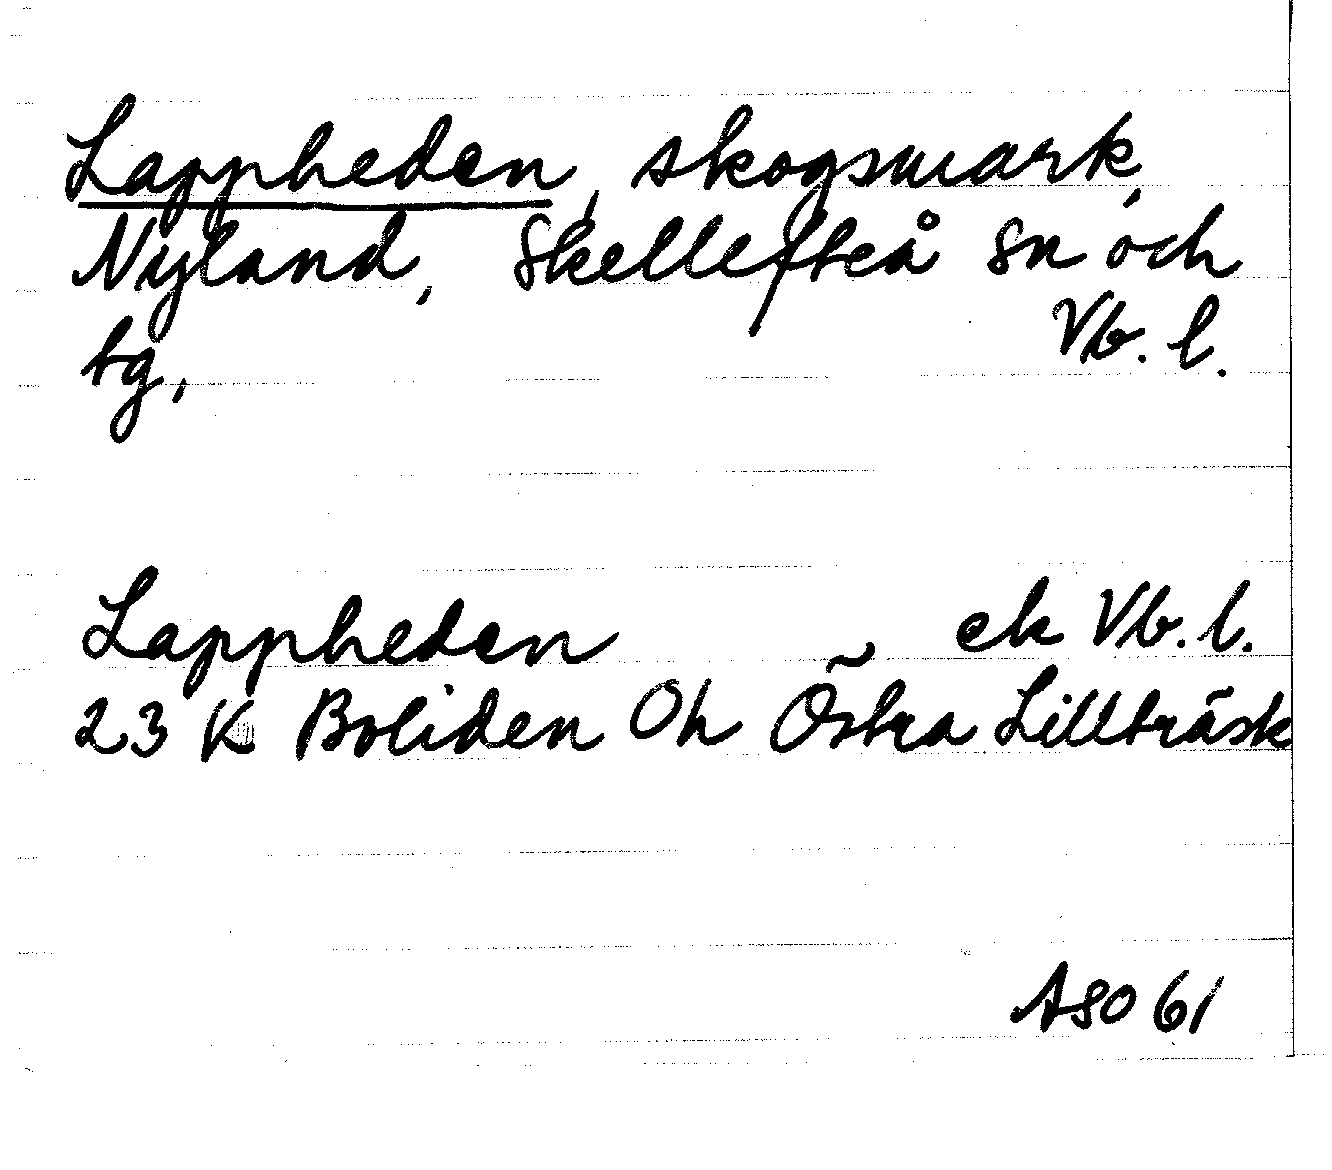 Lappheden, skogsmark,
Nyland, Skellefteå sn och
tg, Vb. l.
Lappheden ek Vb. l.
23 K Boliden Oh Östra Lillträsk
ASO 61